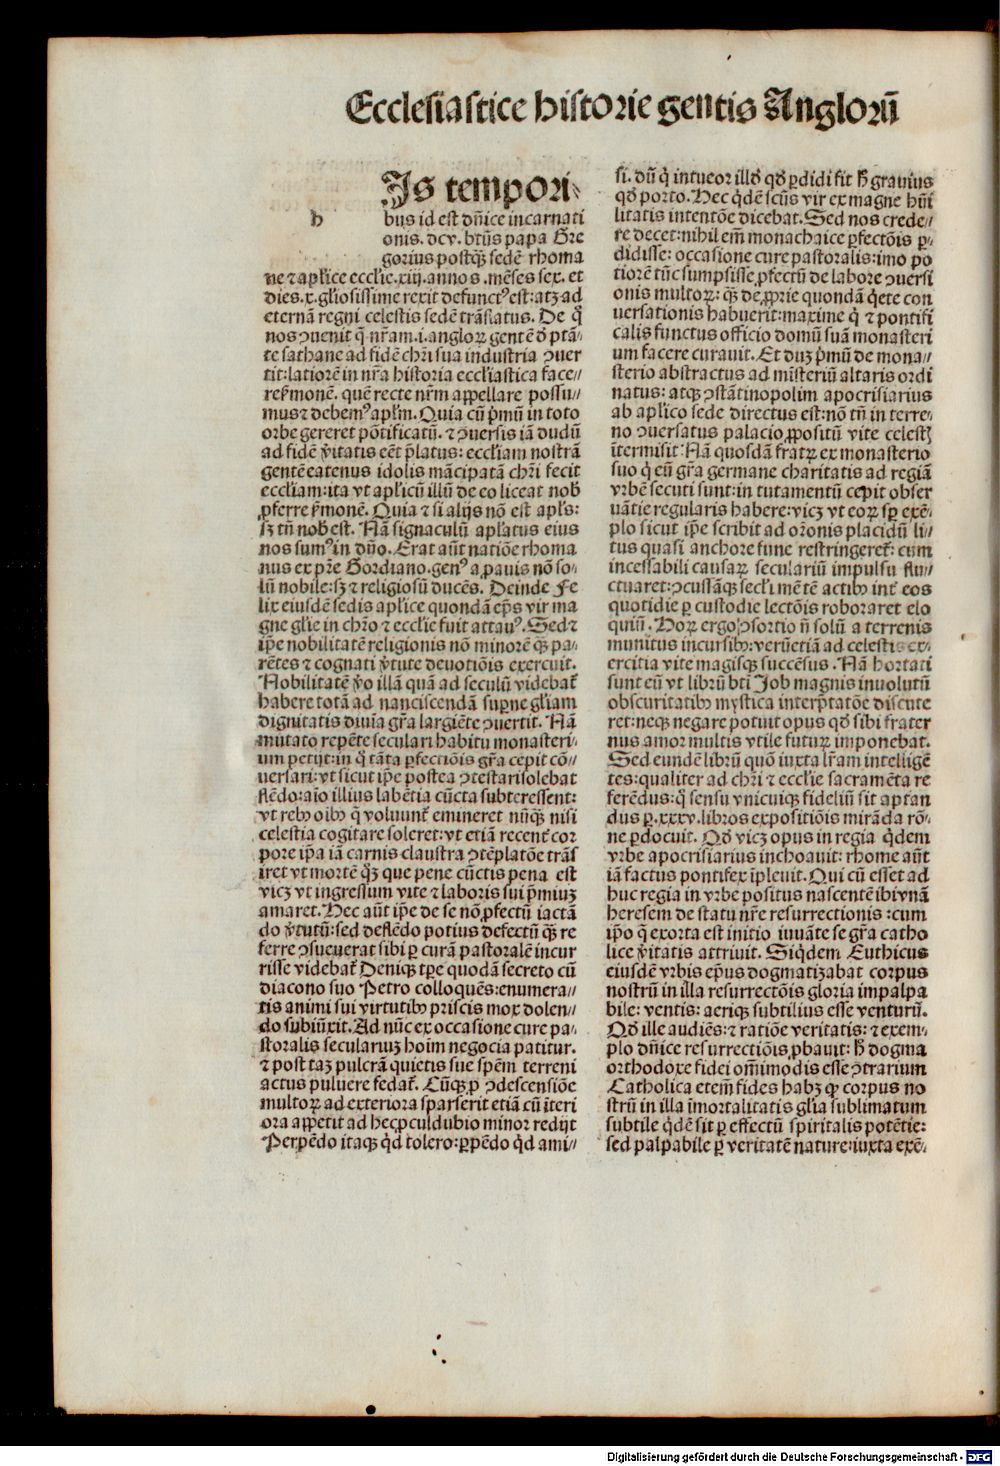 Ecclesiastice historie gentis Anglorū
h
Is tempori-
bus id est dn̄ice incarnati
onis. dcv. btūs papa Gre
gorius postq̄ꝫ sedē rhoma
ne ⁊ apl̄ice eccl̄ie .xiij. annos .mēses sex. et
dies .x. gl̄iosissime rexit defunctꝰ est: atqꝫ ad
eternā regni celestis sedē trāslatus. De q̊
nos ꝯuenit q̄ nr̄am .i. angloꝝ gentē ð ptā-
te sathane ad fidē chr̄i sua industria ꝯuer
tit: latiorē in nr̄a historia eccl̄iastica face//
re ẜmonē. quē recte nr̄m appellare possu//
mus ⁊ debemꝰ apl̄m. Quia cū p̄mū in toto
orbe gereret pōtificatū. ⁊ ꝯuersis iā dudū
ad fidē v̄itatis eēt p̄latus: eccl̄iam nostrā
gentē eatenus idolis mācipatā chr̄i fecit
eccl̄iam: ita vt apl̄icū illū de eo liceat nob̄
ꝓferre ẜmonē. Quia ⁊ si alijs nō est apl̄s:
sꝫ tn̄ nob̄ est. Nā signaculū apl̄atus eius
nos sumꝰ in dn̄o. Erat aūt natiōe rhoma
nus ex pr̄e Gordiano. genꝰ a ꝓauis nō so-
lū nobile: sꝫ ⁊ religiosū ducēs. Deinde Fe
lix eiusdē sedis apl̄ice quondā ep̄s vir ma
gne gl̄ie in chr̄o ⁊ eccl̄ie fuit attauꝰ. Sed ⁊
ip̄e nobilitatē religionis nō minorē q̄ꝫ pa-
rētes ⁊ cognati v̄tute deuotiōis exercuit.
Nobilitatē v̊o illā quā ad seculū videbat᷑
habere totā ad nanciscendā suꝑne gl̄iam
dignitatis diuīa gr̄a largiēte ꝯuertit. Nā
mutato repēte seculari habitu monasteri-
um petijt: in q̊ tāta ꝑfectiōis gr̄a cepit cō//
uersari: vt sicut ip̄e postea ꝯtestari solebat
flēdo: aīo illius labētia cūcta subteressent:
vt rebꝰ oībꝰ q̄ voluunt᷑ emineret nūq̄ꝫ nisi
celestia cogitare soleret: vt etiā recent᷑ cor
pore ip̄a iā carnis claustra ꝯtēplatōe trās
iret vt mortē q̄ꝫ que pene cūctis pena est
vicꝫ vt ingressum vite ⁊ laboris sui p̄miuꝫ
amaret. Hec aūt ip̄e de se nō ꝓfectū iactā
do v̄tutū: sed deflēdo potius defectū q̄ꝫ re
ferre ꝯsueuerat sibi ꝑ curā pastoralē incur
risse videbat᷑. Deniqꝫ tꝑe quodā secreto cū
diacono suo Petro colloquēs: enumera//
tis animi sui virtutibꝰ priscis mox dolen//
do subiūxit. Ad nūc ex occasione cure pa-
storalis seculariuꝫ hoīm negocia patitur.
⁊ post taꝫ pulcrā quietis sue spēm terreni
actus puluere fedat᷑. Cūqꝫ ꝓ ꝯdescensiōe
multoꝝ ad exteriora sparserit etiā cū īteri
ora appetit ad hec ꝓculdubio minor redijt
Perpēdo itaqꝫ q̇d tolero: ꝑpēdo q̇d ami//
si. dū q̇ intueor illð qð ꝑdidi fit h̄ grauius
qð porto. Hec q̇dē scūs vir ex magne hūi
litatis intentōe dicebat. Sed nos crede//
re decet: nihil em̄ monachaice ꝑfectōis ꝑ-
didisse: occasione cure pastoralis: imo po
tiorē tūc sumpsisse ꝓfectū de labore ꝯuersi
onis multoꝝ: q̄ꝫ de ꝓprie quondā q̇ete con
uersationis habuerit: maxime q̇ ⁊ pontifi
calis functus officio domū suā monasteri
um facere curauit. Et duꝫ p̄mū de mona//
sterio abstractus ad mīsteriū altaris ordi
natus: atqꝫ ꝯstātinopolim apocrisiarius
ab apl̄ico sede directus est: nō tn̄ in terre-
no ꝯuersatus palacio ꝓpositū vite celestꝭ
ītermisit. Nā quosdā fratꝝ ex monasterio
suo q̇ eū gr̄a germane charitatis ad regiā
vrbē secuti sunt: in tutamentū cepit obser
uātie regularis habere: vicꝫ vt eoꝝ sꝑ exē-
plo sicut ip̄e scribit ad or̄onis placidū li//
tus quasi anchore fune restringeret᷑: cum
incessabili causaꝝ seculariū impulsu flu//
ctuaret: ꝯcussāqꝫ secl̄i mētē actibꝰ int᷑ eos
quotidie ꝑ custodie lectōis roboraret elo
quiū. Hoꝝ ergo ꝯsortio n̄ solū a terrenis
munitus incursibꝰ: verūetiā ad celestis ex-
ercitia vite magisqꝫ succēsus. Nā hortati
sunt eū vt librū btī Job magnis inuolutū
obscuritatibꝰ mystica interp̄tatōe discute
ret: neqꝫ negare potuit opus qð sibi frater
nus amor multis vtile futuꝝ imponebat.
Sed eundē librū quō iuxta lr̄am intelligē
tes: qualiter ad chr̄i ⁊ eccl̄ie sacramēta re
ferēdus: q̊ sensu vnicuiqꝫ fideliū sit aptan
dus ꝑ .xxxv. libros expositiōis mirāda rō-
ne ꝑdocuit. Qð vicꝫ opus in regia q̇dem
vrbe apocrisiarius inchoauit: rhome aūt
iā factus pontifex īpleuit. Qui cū esset ad
huc regia in vrbe positus nascentē ibi vnā
heresem de statu nr̄e resurrectionis: cum
ip̄o q̊ exorta est initio iuuāte se gr̄a catho
lice v̄itatis attriuit. Siq̇dem Euthicus
eiusdē vrbis ep̄us dogmatizabat corpus
nostrū in illa resurrectōis gloria impalpa
bile: ventis: aeriqꝫ subtilius esse venturū.
Qð ille audiēs: ⁊ ratiōe veritatis: ⁊ exem-
plo dn̄ice resurrectiōis ꝓbauit: h̄ dogma
orthodoxe fidei om̄imodis esse ꝯtrarium
Catholica etem̄ fides habꝫ ꝙ corpus no
strū in illa īmortalitatis gl̄ia sublimatum
subtile q̇dē sit ꝑ effectū spiritalis potētie:
sed palpabile ꝑ veritatē nature: iuxta exē-
Digitalisierung gefördert durch die Deutsche Forschungsgemeinschaft - DFG